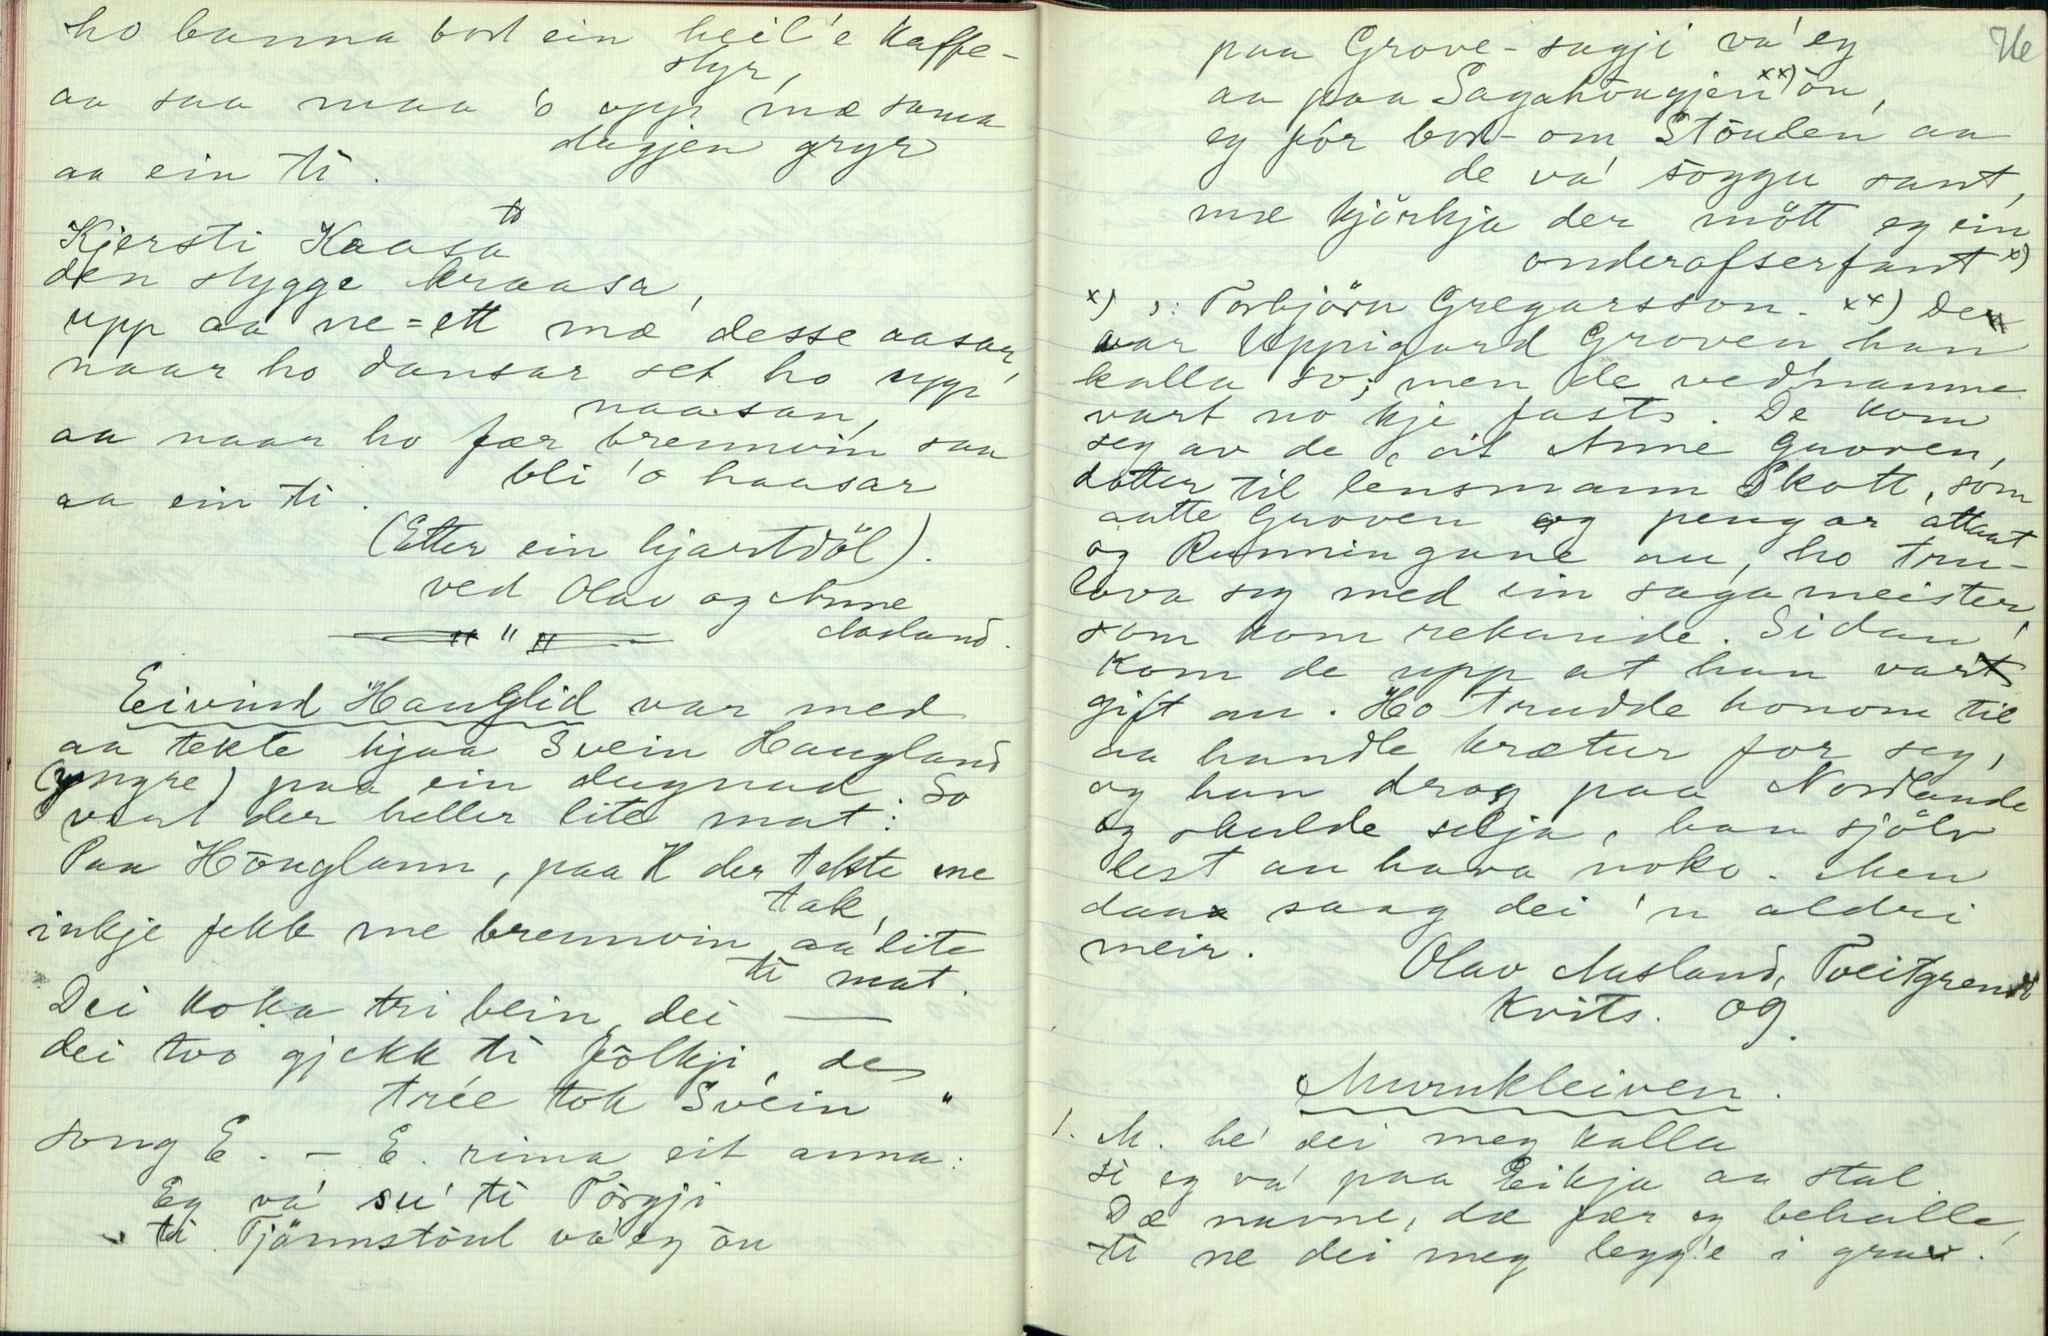 ho banna bort ein heil'e Kaffe-
styr,
aa saa maa 'o upp mæ sama
dagjen gryr
aa ein ti.
Kjersti Kaasa
den stygge kraasa,
upp aa ne=ett mæ desse aasar,
naar ho dansar set ho upp
naasan,
aa naar ho fær brennvin saa
bli 'o haasar
aa ein ti.
(Etter ein hjartdöl).
ved Olav og Anne
Aasland.
Eivind Hauglid var med
aa tekte hjaa Svein Haugland
(yngre) paa ein dugnad. So
vart der heller lite mat:
Paa Hōuglann, paa H der tekte me
tak,
inkje fekk me brennvin, aa lite
ti mat.
Dei koka tri bein, dei —
dei tvo gjekk ti fōlkji, de
trée tok Svéin "
song E. – E. rima eit anna:
Eg va' su' ti Tōrgji
ti Tjönnstōul va' eg ōu
76
paa Grove-sagji va' eg
aa paa Sagahougjen xx) ōu,
eg fór bort-om Stōulen aa
de va' sōggu sant,
mæ kjörkja der mött eg ein
onderofserfant x)
x) ɔ: Torbjörn Gregarsson. xx) De
var Uppigard Groven han
kalla so; men de vednamne
vart no kje fast. De kom
seg av de, at Anne Groven,
dotter til lensmann Skott, som
aatte Groven og pengar attaat
og Runningane au, ho tru-
lova seg med ein sagameister,
som kom rekande. Sidan
kom de upp at han var
gift au. Ho trudde honom til
aa handle krætur for seg,
og han drog paa Nordlande
og skulde selja, han sjölv
lest au hava noko. Men
daa saag dei 'n aldri
meir.
Olav Aasland, Tveitgrend
Kvits. og.
Murukleiven.
1. M. he' dei meg kalla
si eg va' paa Eikja aa stal
Dæ navne, dæ fær eg behalle,
ti ne dei meg legg'e i grav.